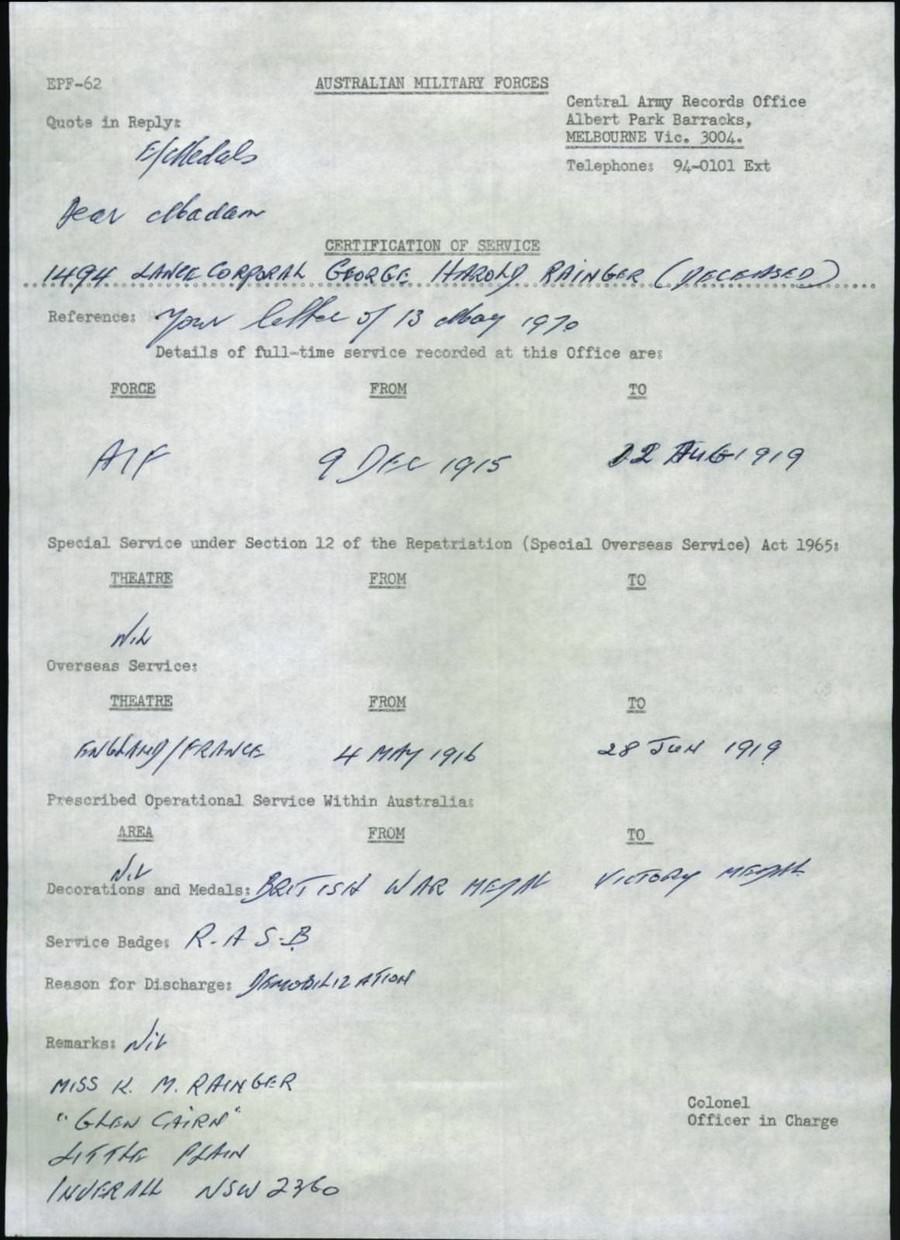 EPF-62
AUSTRALIAN MILITARY FORCES
Central Army Records Office
Albert Park Barracks,
MELBOURNE Vic. 3004.
Telephone: 94-0101 Ext
Quote in Reply:
E/Medals
Dear Madam
CERTIFICATION OF SERVICE
1494 LANCE CORPORAL GEORGE HAROLD RAINGER (DECEASED)
Reference: Your letter of 13 May 1970
Details of full-time service recorded at this Office are:
FORCE FROM TO
AIF 9 DEC 1915 22 AUG 1919
Special Service under Section 12 of the Repatriation (Special Overseas Service) Act 1965:
THEATRE FROM TO
NIL
Overseas Service:
THEATRE FROM TO
ENGLAND/FRANCE 4 MAY 1916 28 JUN 1919
Prescribed Operational Service Within Australia:
AREA FROM TO
NIL
Decorations and Medals: BRITISH WAR MEDAL VICTORY MEDAL
Service Badge: R.A.S.B
Reason for Discharge: DEMOBILIZATION
Remarks: Nil
MISS K. M. RAINGER
"GLEN CAIRN"
LITTLE PLAIN
INVERALL NSW 2360
Colonel
Officer in Charge